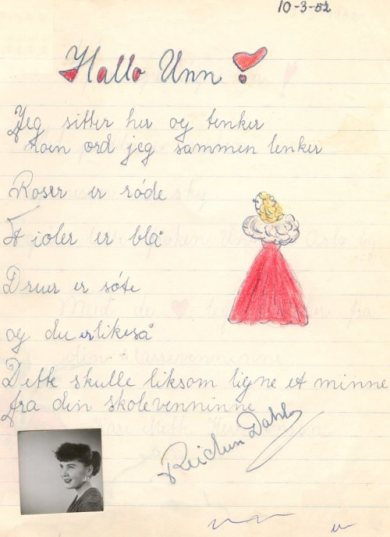 10-3-52
Hallo Unn!
Jeg sitter her og tenker
noen ord jeg sammen lenker
Roser er røde
Fioler er blå
Druer er søte
og du er likeså
Dette skulle liksom ligne et minne
fra din skolevenninne
Reidun Dahl